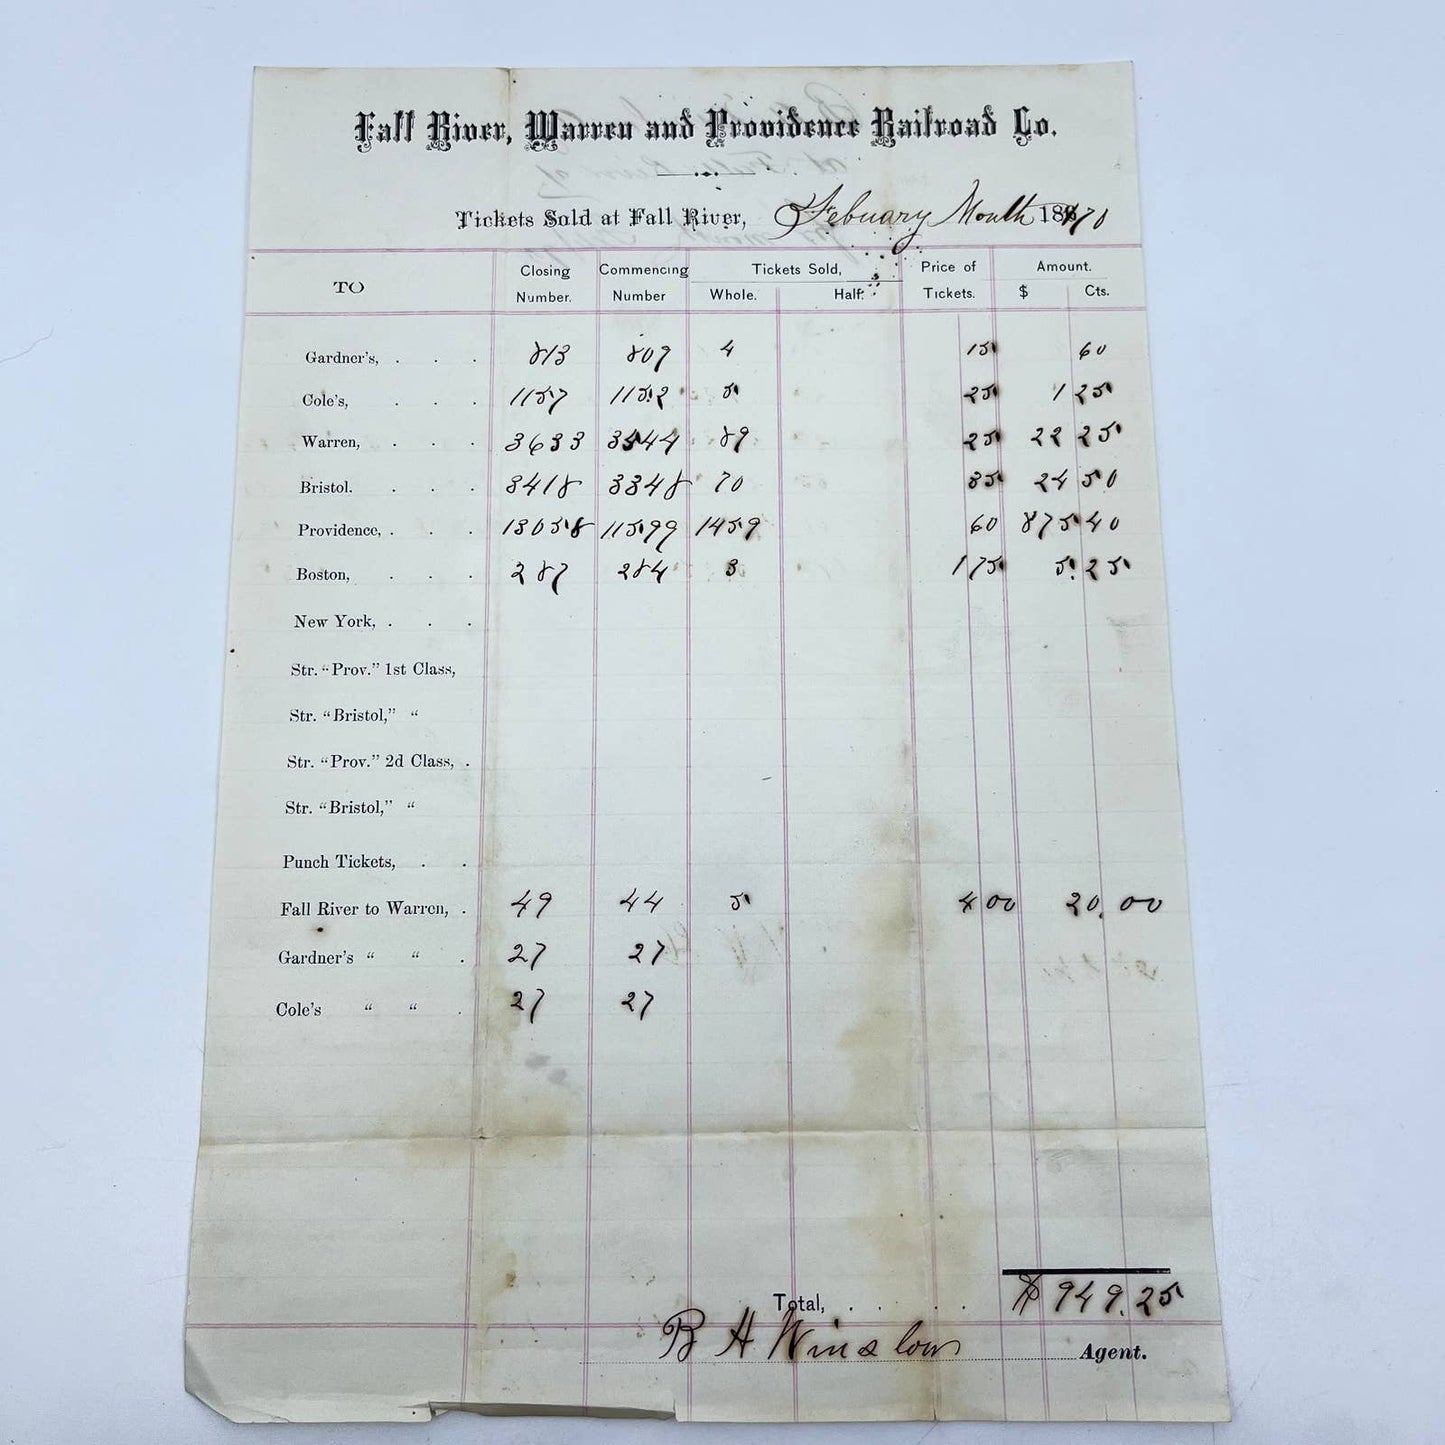 Fall River, Warren and Providence Railroad Co.
Tickets Sold at Fall River, Febuary Month 1870
TO Closing Number. Commencing Number Tickets Sold, Whole. Half. Price of Tickets. Amount. $ Cts.
Gardner's, . . . 813 809 4 15 60
Cole's, . . . 1157 1152 5 25 1 25
Warren, . . . 3633 3544 89 25 22 25
Bristol. . . . 3418 3348 70 35 24 50
Providence, . . . 13058 11599 1459 60 875 40
Boston, . . . 287 284 3 1 75 5. 25
New York, . . .
Str. "Prov." 1st Class,
Str. "Bristol," "
Str. "Prov." 2d Class, .
Str. "Bristol," "
Punch Tickets, . .
Fall River to Warren, . 49 44 5 4 00 20. 00
Gardner's " " . 27 27
Cole's " " . 27 27
Total, . . . . $949.25
B H Winslow Agent.